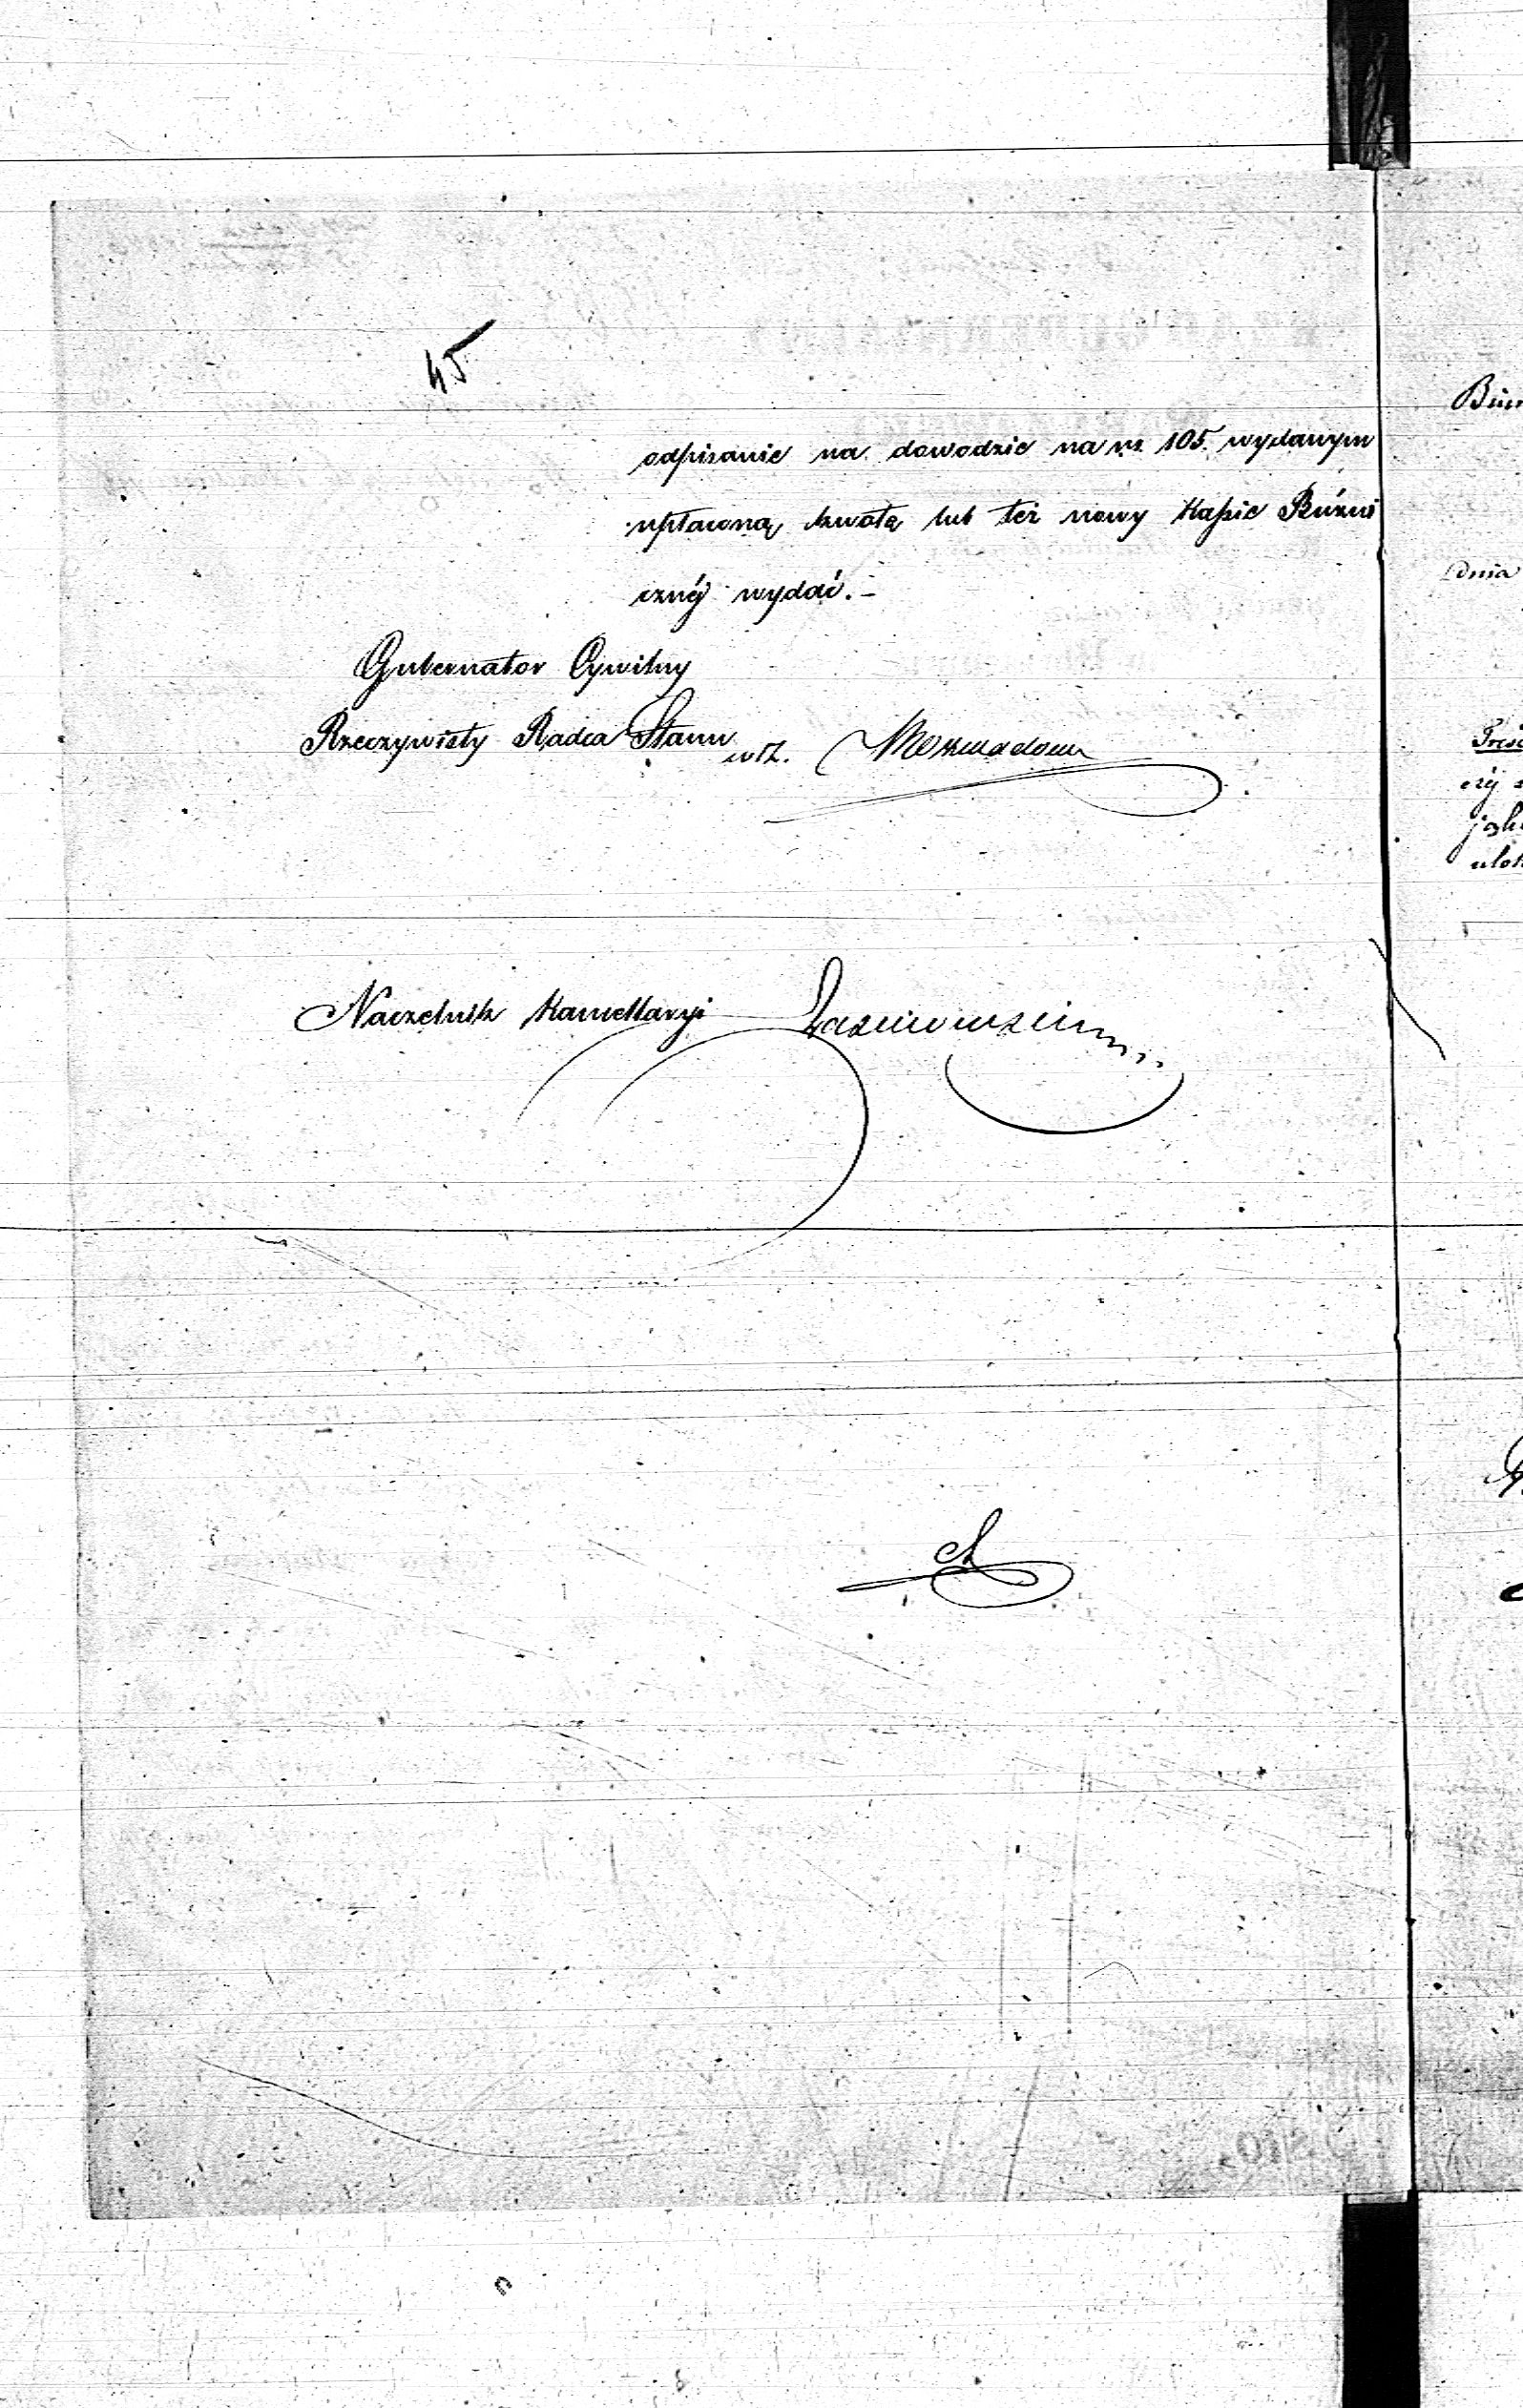 45
odpisanie na dowodzie na rs 105. wydanym
wpłaconą kwotę lub też nowy Kassie Bóżni
cznéj wydać. –
Gubernator Cywilny
Rzeczywisty Radca Stanu
Naczelnik Kancellaryi
Dnia